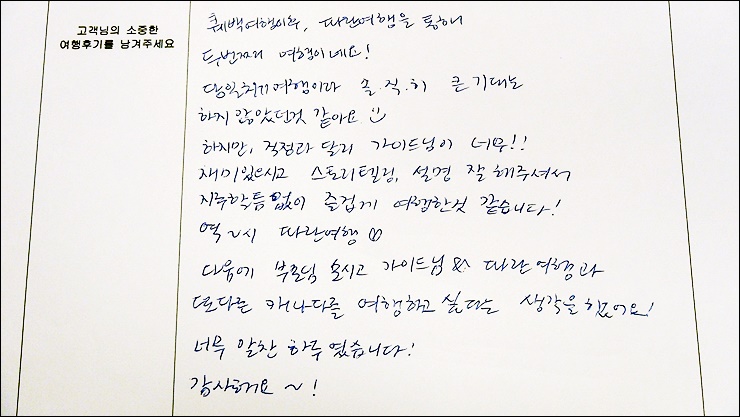 고객님의 소중한
여행후기를 남겨주세요
퀘백여행이후, 따란여행을 통해
두번째 여행이네요!
당일치기 여행이라 솔.직.히 큰 기대는
하지 않았던것 같아요
하지만, 걱정과 달리 가이드님이 너무!!
재미있으시고 스토리텔링, 설명 잘 해주셔서
지루할틈 없이 즐겁게 여행한것 같습니다!
역~시 따란여행
다음에 부모님 모시고 가이드님 & 따란여행과
또다른 캐나다를 여행하고 싶다는 생각을 했어요!
너무 알찬 하루였습니다!
감사해요 ~!